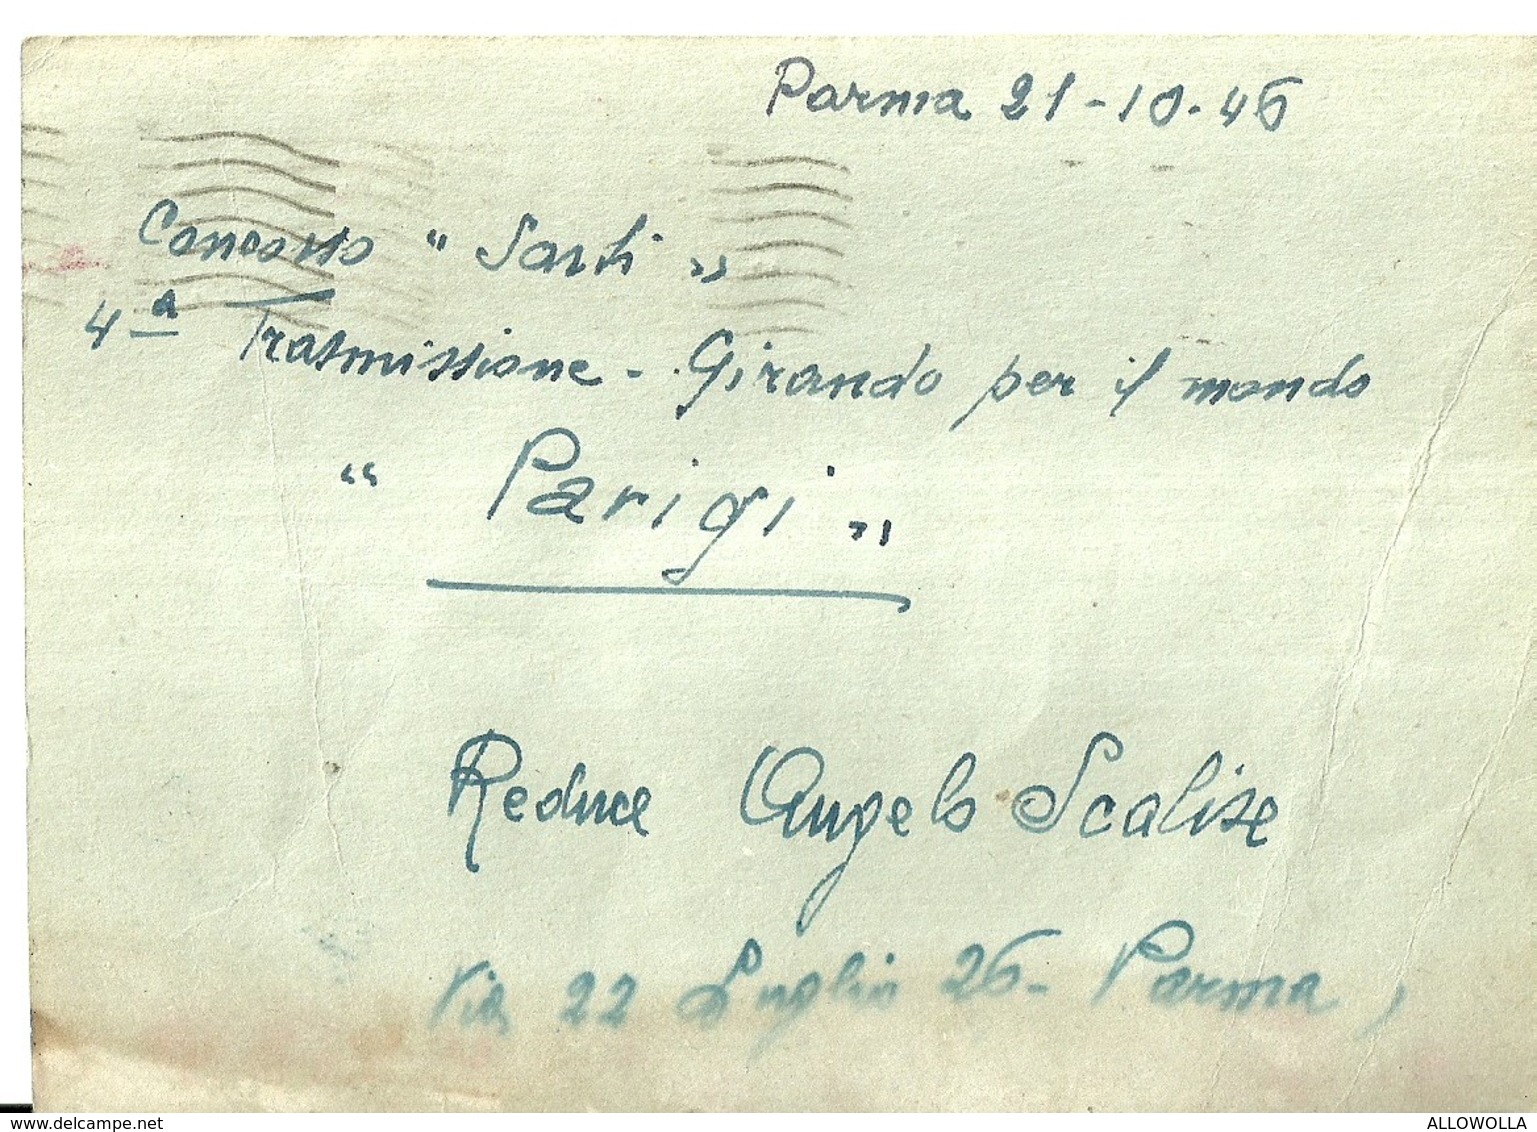 Parma 21-10.46
Concorso " Sarti "
4ª Trasmissione - Girando per il mondo
" Parigi "
Reduce Angelo Scalise
Via 22 Luglio 26 - Parma
www.delcampe.net
ALLOWOLLA